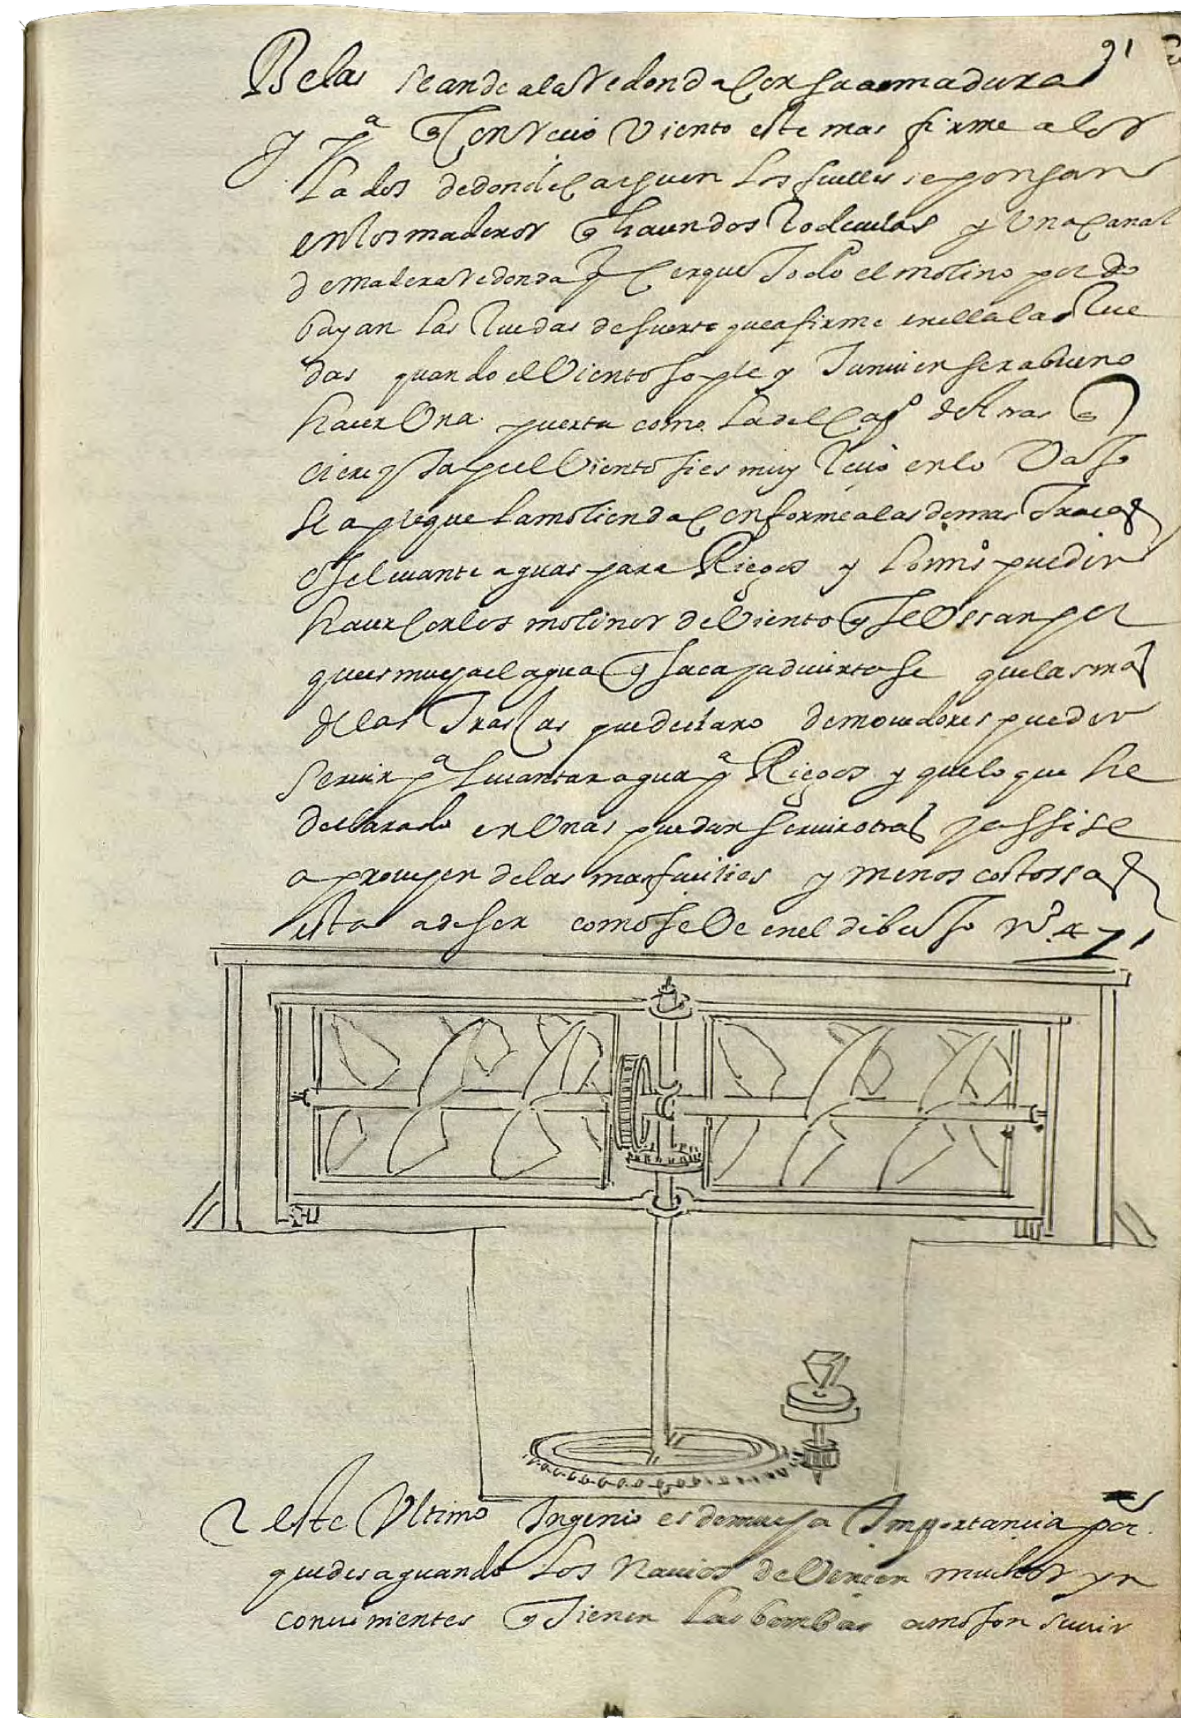 91
Belas se ande a la redonda con su armadura
y pa q con recio viento este mas firme a los
lados de donde carguen los fuelles se pongan
en los maderos q hacen dos rodeuelas y una canal
de madera redonda q cerque todo el molino por do
bayan las ruedas de suerte que afirme en ella las rue
das quando el viento sople y tanuien sera bueno
hacer una puerta como la del de atras q
cierre y tape el viento si es muy recio en lo
se aplique la molienda conforme a las demas traças
el leuante aguas para Riegos y lo mismo pueden
hacer con los molinos de viento q se ussan por
que es mucha el agua q saca y aduiertase que las mas
de las traças que declaro de mouedores pueden
seruir pa leuantar agua pa Riegos y que lo que he
declarado en unas puedan seruir otras y assi se
aprouechen de las mas faciles y menos costossas
esta a de ser como se ve en el dibujo no 471
este Ultimo Ingenio es de mucha Importancia por
que desaguando los nauios de vienen muchos yn
conuinientes q tienen las bombas como son seruir